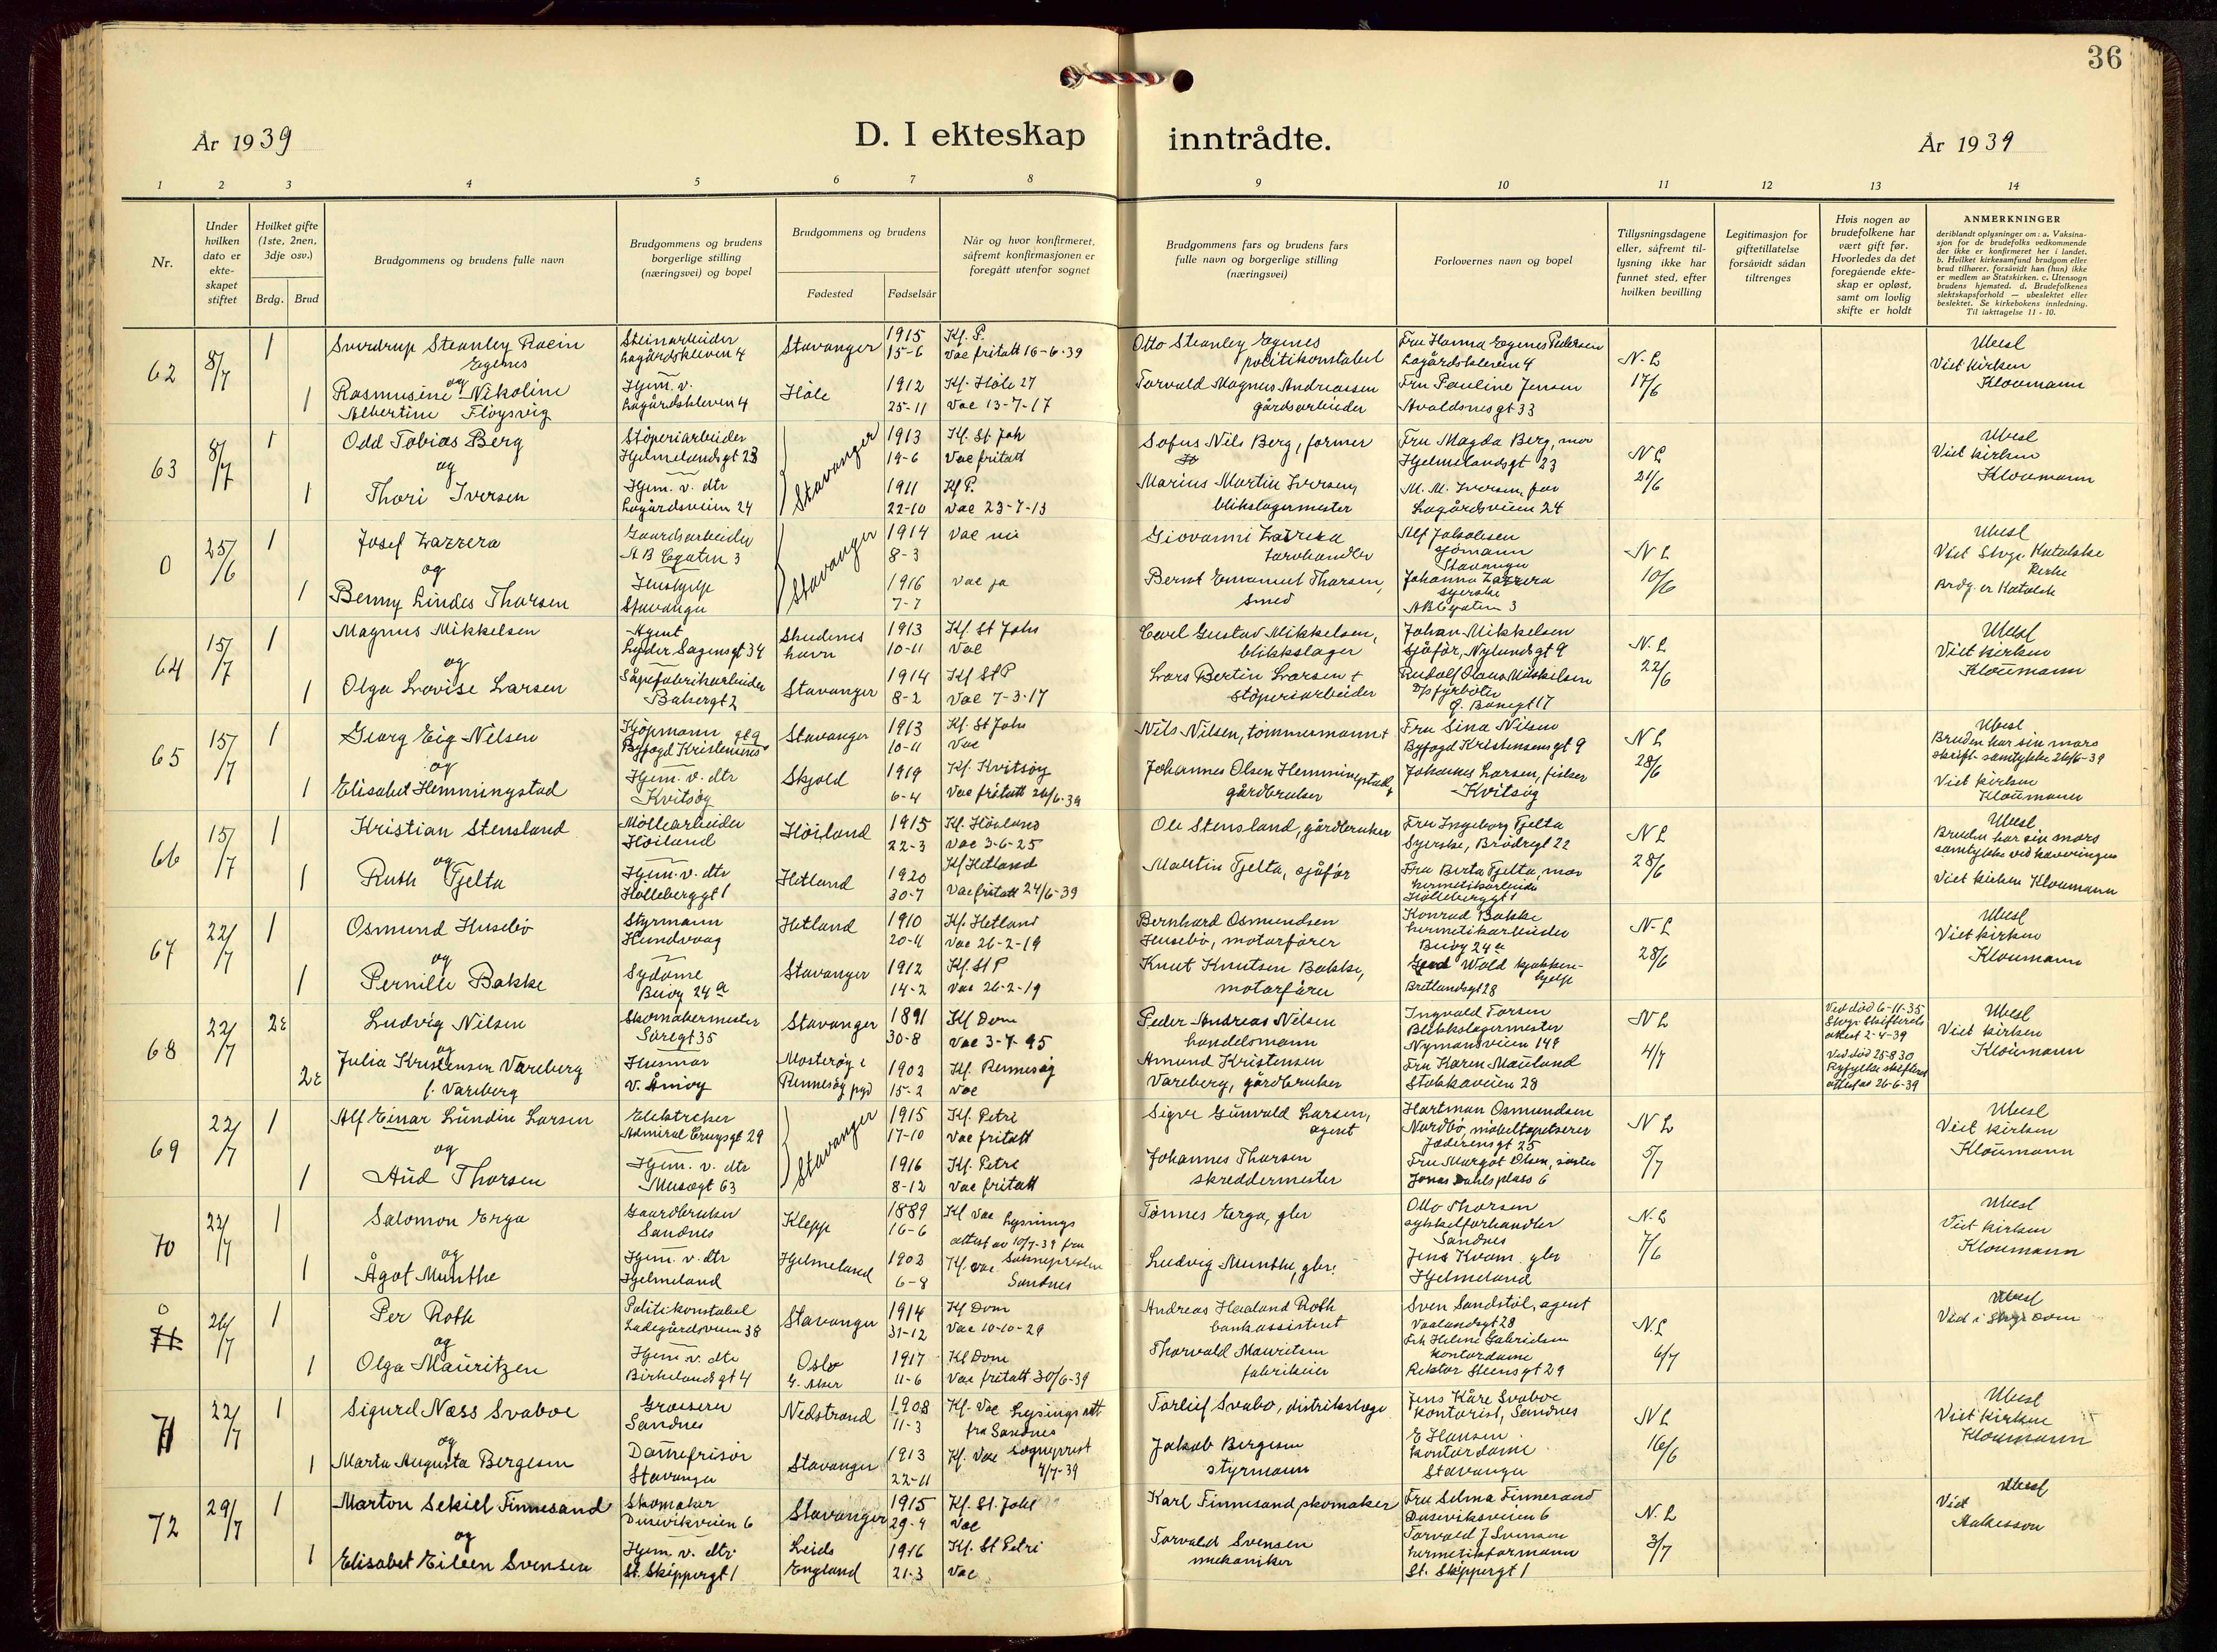 36
År 1939
D. I ekteskap
inntrådte.
År 1939
1 2 3 4 5 6 7 8 9 10 11 12 13 14
Nr.
Under hvilken dato er ekte-skapet stiftet
Hvilket gifte (1ste, 2nen, 3dje osv.)
Brdg. Brud
Brudgommens og brudens fulle navn
Brudgommens og brudens borgerlige stilling (næringsvei) og bopel
Brudgommens og brudens
Fødested Fødselsår
Når og hvor konfirmeret, såfremt konfirmasjonen er foregått utenfor sognet
Brudgommens fars og brudens fars fulle navn og borgerlige stilling (næringsvei)
Forlovernes navn og bopel
Tillysningsdagene eller, såfremt til-lysning ikke har funnet sted, efter hvilken bevilling
Legitimasjon for giftetillatelse forsåvidt sådan tiltrenges
Hvis nogen av brudefolkene har vært gift før. Hvorledes da det foregående ekte-skap er opløst, samt om lovlig skifte er holdt
ANMERKNINGER
deriblandt oplysninger om: a. Vaksina-
sjon for de brudefolks vedkommende
der ikke er konfirmeret her i landet.
b. Hvilket kirkesamfund brudgom eller
brud tilhører, forsåvidt han (hun) ikke
er medlem av Statskirken. c. Utensogn
brudens hjemsted. d. Brudefolkenes
slektskapsforhold — ubeslektet eller
beslektet. Se kirkebokens innledning.
Til iakttagelse 11 - 10.
62 8/7 1 Sverdrup Stanley Racin Egenes
Steinarbeider Lagårdskleven 4
Stavanger 1915 15-6
Kf. P. Vac fritatt 16-6-39
Otto Stanley Egenes politikonstabel
Fru Hanna Egenes Pedersen Lagårdskleven 4
N. L 17/6
Ubesl Viet kirken Kloumann
og
1 Rasmusine Nikoline Albertine Fløysvig
Hjem. v. Lagårdskleven 4
Høle 1912 25-11
Kf. Høle 27 Vac 13-7-17
Torvald Magnus Andreassen gårdsarbeider
Fru Pauline Jensen Avaldsnesgt 33
63 8/7 1 Odd Tobias Berg
Støperiarbeider Hjelmelandsgt 23
Stavanger 1913 19-6
Kf. St Joh Vac fritatt
Sofus Nils Berg, former
Fru Magda Berg, mor Hjelmelandsgt 23
N L 21/6
Ubesl Viet kirken Kloumann
og
1 Thori Iversen
Hjem. v. dtr Lagårdsveien 24
1911 22-10
Kf P. Vac 23-7-13
Marius Martin Iversen, blikslagermester
M. M. Iversen, far Lagårdsveien 24
0 25/6 1 Josef Lazzera
Gaardsarbeider A B Cgaten 3
Stavanger 1914 8-3
Vac nei
Giovanni Lazzera
Alf Jakobsen sjømann Stavanger
N L 10/6
Ubesl Viet Stvgr. Katolske Kirke
Brdg. er Katolsk
og
1 Benny Lindes Thorsen
Hushjelp Stavanger
1916 7-7
Vac ja
Bernt Emanuel Thorsen, smed
Johanna Lazzera syerske ABCgaten 3
64 15/7 1 Magnus Mikkelsen
Agent Lyder Sagensgt 34
Skudenes havn 1913 10-11
Kf. St Johs Vac
Carl Gustav Mikkelsen, blikkslager
Johan Mikkelsen sjåfør, Nylundsgt 9
N. L 22/6
Ubesl Viet kirken Kloumann
og
1 Olga Lovise Larsen
Såpefabrikarbeider Bakergt 2
Stavanger 1914 8-2
Kf St P Vac 7-3-17
Lars Bertin Larsen + støperiarbeider
Rudolf Olaus Mikkelsen D/s fyrbøter
65 15/7 1 Georg Eig-Nilsen
Kjøpmann Byfogd Kristensens gt 9
Stavanger 1913 10-11
Kf. St Johs Vac
Nils Nilsen, tømmermann +
Fru Sina Nilsen Byfogd Kristensensgt 9
N L 28/6
Ubesl Bruden har sin mors skriftl. samtykke 26/6-39
Viet kirken Kloumann
og
1 Elisabet Hemmingstad
Hjem. v. dtr Kvitsøy
Skjold 1919 6-4
Kf. Kvitsøy Vac fritatt 26/6-39
Johannes Olsen Hemmingstad, gårdbruker
Johannes Larsen, fisker Kvitsøy
66 15/7 1 Kristian Stensland
Møllearbeider Höiland
Höiland 1915 22-3
Kf. Höiland Vac 3-6-25
Ole Stensland, gårdbruker
Fru Ingeborg Tjelta Syerske, Brödregt 22
N L 28/6
Ubesl Bruden har sin mors samtykke ved kaveringen
Viet kirken Kloumann
og
1 Ruth Tjelta
Hjem. v. dtr Hölleberggt 1
Hetland 1920 30-7
Kf Hetland Vac fritatt 24/6-39
Martin Tjelta, sjåfør
Fru Berta Tjelta, mor hermetikarbeider Hölleberggt 1
67 22/7 1 Osmund Husebø
Styrmann Hundvaag
Hetland 1910 20-4
Kf. Hetland Vac 26-2-19
Bernhard Osmundsen Husebø, motorfører
Konrad Bakke hermetikarbeider Buøy 24a
N. L 28/6
Ubesl Viet kirken Kloumann
og
1 Pernille Bakke
Sydame Buøy 24a
Stavanger 1912 14-2
Kf. St P Vac 26-2-19
Knut Knutsen Bakke, motorfører
Gerd Wold kjøkken-hjelp Bretlandsgt 28
68 22/7 2E Ludvig Nilsen
Skomakermester Søregt 35
Stavanger 1891 30-8
Kf Dom Vac 3-7-95
Peder Andreas Nilsen handelsmann
Ingvald Torsen Blikkslagermester Nymansveien 149
N L 4/7
Ved død 6-11-35 Stvgr. Skifteretts attest 2-4-39
Ubesl Viet kirken Kloumann
og
2E Julia Kristensen Vareberg f. Vareberg
Husmor v. Åmøy
Mosterøy i Rennesøy pgd 1902 15-2
Kf. Rennesøy Vac
Amund Kristensen Vareberg, gårdbruker
Fru Karen Mauland Stokkaveien 28
Ved død 25-8 30 Ryfylke skifterett attest av 26-6-39
69 22/7 1 Alf Einar Lundin Larsen
Elektriker Admiral Cruysgt 29
Stavanger 1915 17-10
Kf. Petri Vac fritatt
Sigve Gunvald Larsen, agent
Hartman Osmundsen Nordbø, møbeltapetserer Jæderensgt 25
N L 5/7
Ubesl Viet kirken Kloumann
og
1 Aud Thorsen
Hjem. v. dtr Muségt 63
1916 8-12
Kf. Petri Vac fritatt
Johannes Thorsen skreddermester
Fru Margot Olsen, søster Jonas Dahls plass 6
70 22/7 1 Salomon Erga
Gaardbruker Sandnes
Klepp 1889 16-6
Kf Vac Lysnings attest av 10/7-39 fra
Tönnes Erga, gbr
Otto Thorsen sykkelforhandler Sandnes
N. L 7/6
Ubesl Viet kirken Kloumann
og
1 Ågot Munthe
Hjem. v. dtr Hjelmeland
Hjelmeland 1902 6-8
Kf. Vac Soknepresten Sandnes
Ludvig Munthe, gbr.
Jens Kvam gbr Hjelmeland
0 71 26/7 1 Per Roth
Politikonstabel Ladegårdsveien 38
Stavanger 1914 31-12
Kf Dom Vac 10-10-29
Andreas Haaland Roth bankassistent
Sven Sandstöl, agent Vaalandsgt 28
N. L 6/7
Ubesl Viet i Stvgr dom
og
1 Olga Mauritzen
Hjem v. dtr Birkelandsgt 4
Oslo G. Aker 1917 11-6
Kf Dom Vac fritatt 30/6-39
Thorvald Mauritzen fabrikeier
Frk Helene Gabrielsen kontordame Rektor Steensgt 29
71 22/7 1 Sigurd Næss Svaboe
Grosserer Sandnes
Nedstrand 1908 11-3
Kf. Vac Lysnings att fra Sandnes
Torleif Svabo, distriktslege
Jens Kåre Svaboe kontorist, Sandnes
N L 16/6
Ubesl Viet kirken Kloumann
og
1 Marta Augusta Bergesen
Damefrisör Stavanger
Stavanger 1913 22-11
Kf. Vac sogneprest 4/7-39
Jakob Bergesen styrmann
E Hansen kontordame Stavanger
72 29/7 1 Marton Sekiel Finnesand
Skomaker Dusevikveien 6
Stavanger 1915 29-4
Kf. St. Johs Vac
Karl Finnesand, skomaker
Fru Selma Finnesand Duseviksveien 6
N. L 3/7
Ubesl Viet
og
1 Elisabet Eileen Svensen
Hjem. v. dtr St. Skippergt 1
Leids England 1916 21-3
Kf. St Petri Vac
Torvald Svensen mekaniker
Torvald J Svensen hermetikformann St. Skippergt 1